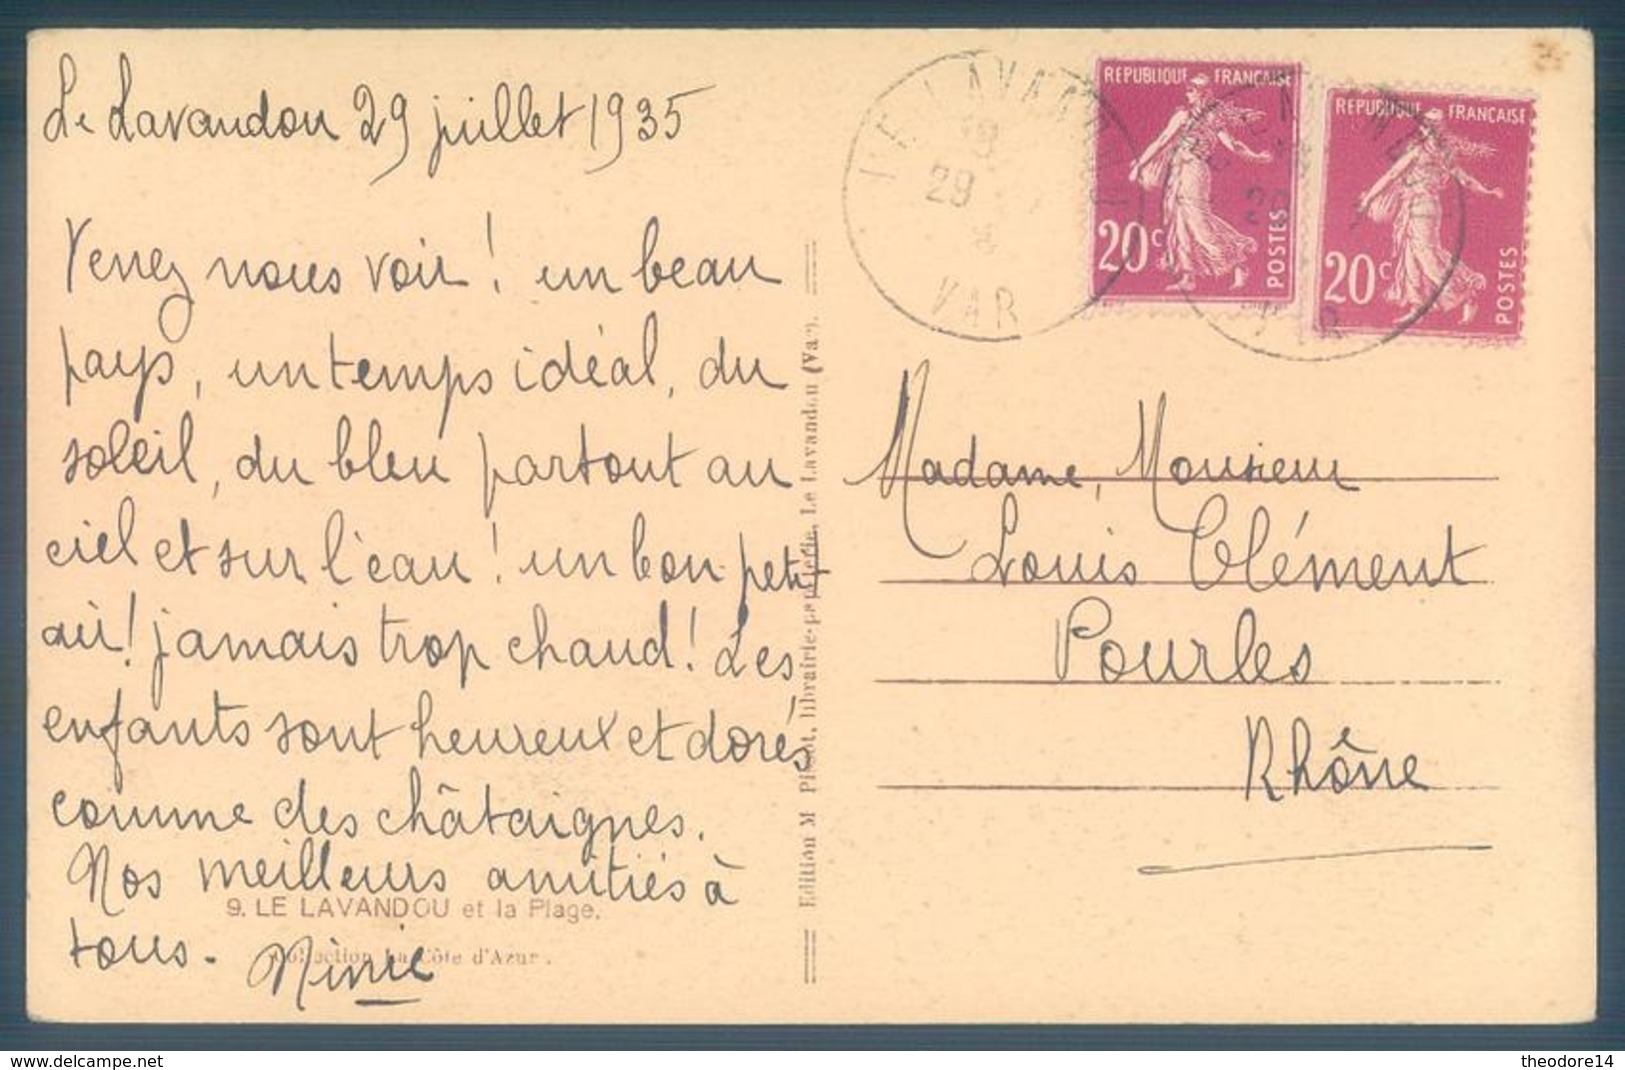 Le Lavandou 29 juillet 1935
Venez nous voir! un beau
pays, un temps idéal, du
soleil, du bleu partout au
ciel et sur l'eau! un bon petit
air! jamais trop chaud! Les
enfants sont heureux et dorés
comme des châtaignes.
Nos meilleurs amitiés à
tous.
9. LE LAVANDOU et la Plage.
Collection La Côte d'Azur.
Edition M librairie-papeterie, Le Lavandou (Var).
LE LAVANDOU
29
VAR
REPUBLIQUE FRANÇAISE
20c
POSTES
REPUBLIQUE FRANÇAISE
20c
POSTES
Madame, Monsieur
Louis Clément
Pourles
Rhône
www.delcampe.net
theodore14